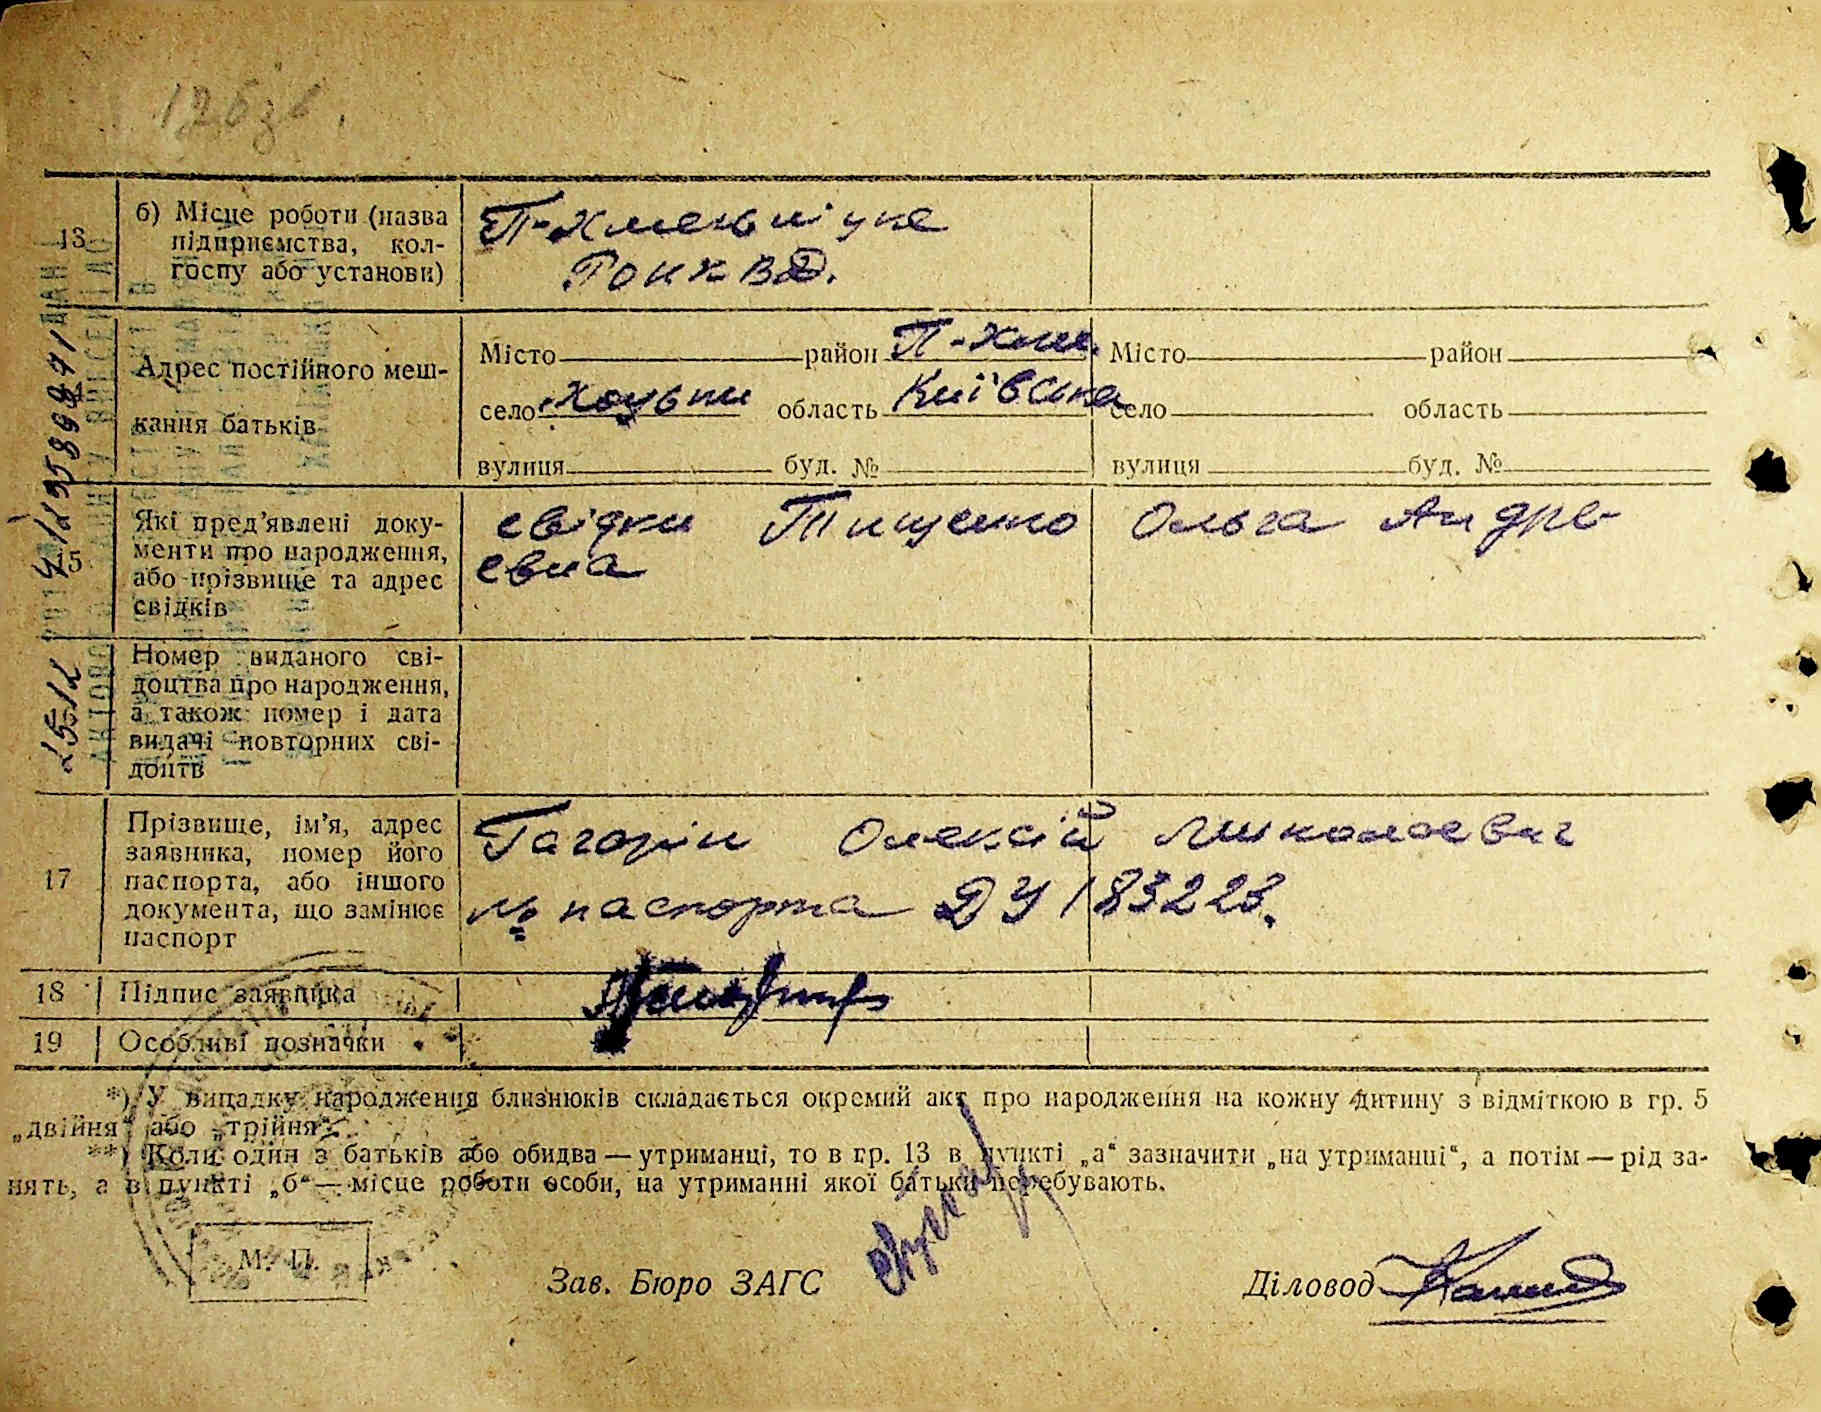 126зв.
13
б) Місце роботи (назва
підприємства, кол-
госпу або установи)
П-Хмельніцке
РОНКВД.
Адрес постійного меш-
кання батьків
Місто район П-Хме. Місто район
село область Київська село область
вулиця буд. № вулиця буд. №
15
Які пред'явлені доку-
менти про народження,
або прізвище та адрес
свідків
свідки Тищенко Ольга Андре-
евна
Номер виданого сві-
доцтва про народження,
а також номер і дата
видачі повторних сві-
доцтв
17
Прізвище, ім'я, адрес
заявника, номер його
паспорта, або іншого
документа, що замінює
паспорт
Гагорін Олексій Миколоевич
№ паспорта ДУ 183223.
18 Підпис заявника
19 Особливі позначки
*) У випадку народження близнюків складається окремий акт про народження на кожну дитину з відміткою в гр. 5
„двійня“ або „трійня“.
**) Коли один з батьків або обидва — утриманці, то в гр. 13 в пункті „а“ зазначити „на утриманні“, а потім — рід за-
нять, а в пункті „б“ — місце роботи особи, на утриманні якої батьки перебувають.
М. П.
Зав. Бюро ЗАГС
Діловод